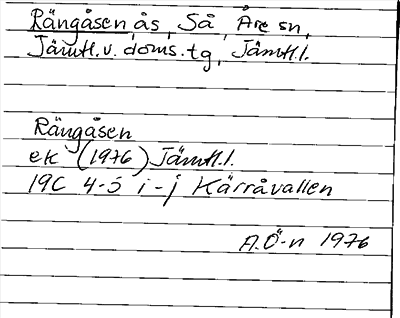 Rängåsen, ås, Så, Åre sn,
Jämtl.v. doms.tg, Jämtl.l.
Rängåsen
ek (1976) Jämtl.l.
19C 4-5 i-j Kärråvallen
A.Ö-n 1976